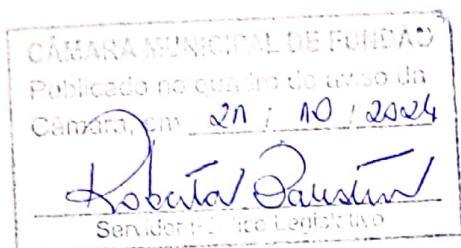 CÂMARA MUNICIPAL DE FUNDÃO
Publicado no quadro de aviso da
Câmara, em 21 / 10 / 2024
Roberta
Servidor Legislativo